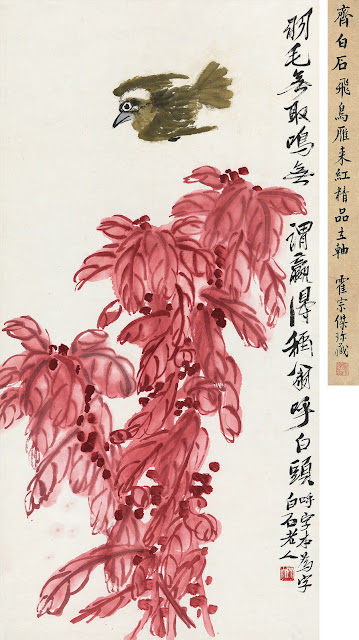 齊白石飛鳥雁來紅精品立軸 霍宗傑珍藏
羽毛無取鳴無謂贏得稱翁呼白頭
呼字本為字
白石老人